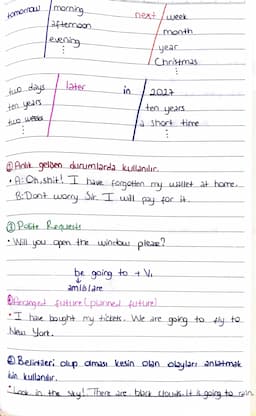 tomorrow morning next week
afternoon month
evening year
⋮ Christmas
⋮
two days later in 2027
ten years ten years
two weeks a short time
⋮ ⋮
① Anlık gelişen durumlarda kullanılır.
• A: Oh, shit! I have forgotten my wallet at home.
B: Dont worry Sir. I will pay for it.
③ Polite Requests
• Will you open the window please?
be going to + V₁
am/is/are
Arranged future (planned future)
• I have bought my tickets. We are going to fly to
New York.
② Belirtileri olup olması kesin olan olayları anlatmak
için kullanılır.
• Look in the sky! There are black clouds. It is going to rain.